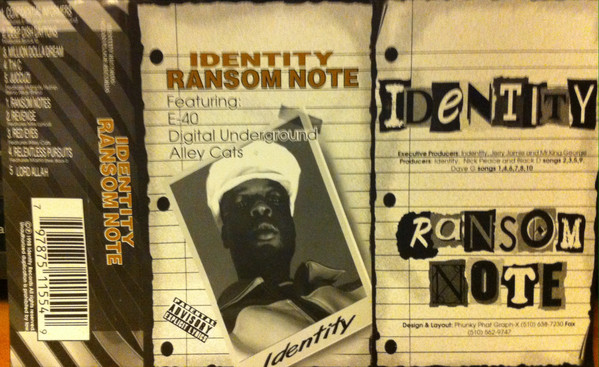 3. MILLION DOLLA DREAM
1. RANSOM NOTES
2. REVENGE
3. RED EYES
4. RELENTLESS PURSUITS
5. LORD ALLAH
IDENTITY
RANSOM NOTE
7 97875 11554 9
IDENTITY
RANSOM NOTE
Featuring:
E-40
Digital Underground
Alley Cats
PARENTAL
ADVISORY
EXPLICIT LYRICS
Identity
IDeNTITY
Executive Producers: Indentity, Jerry Jamie and Mt King George
Producers: Identity, Nick Peace and Black D songs 2,3,5,9,
Dave G songs 1,4,6,7,8,10
RaNSOM
NOTE
Design & Layout: Phunky Phat Graph-X (510) 638-7230 Fax
(510) 562-9747